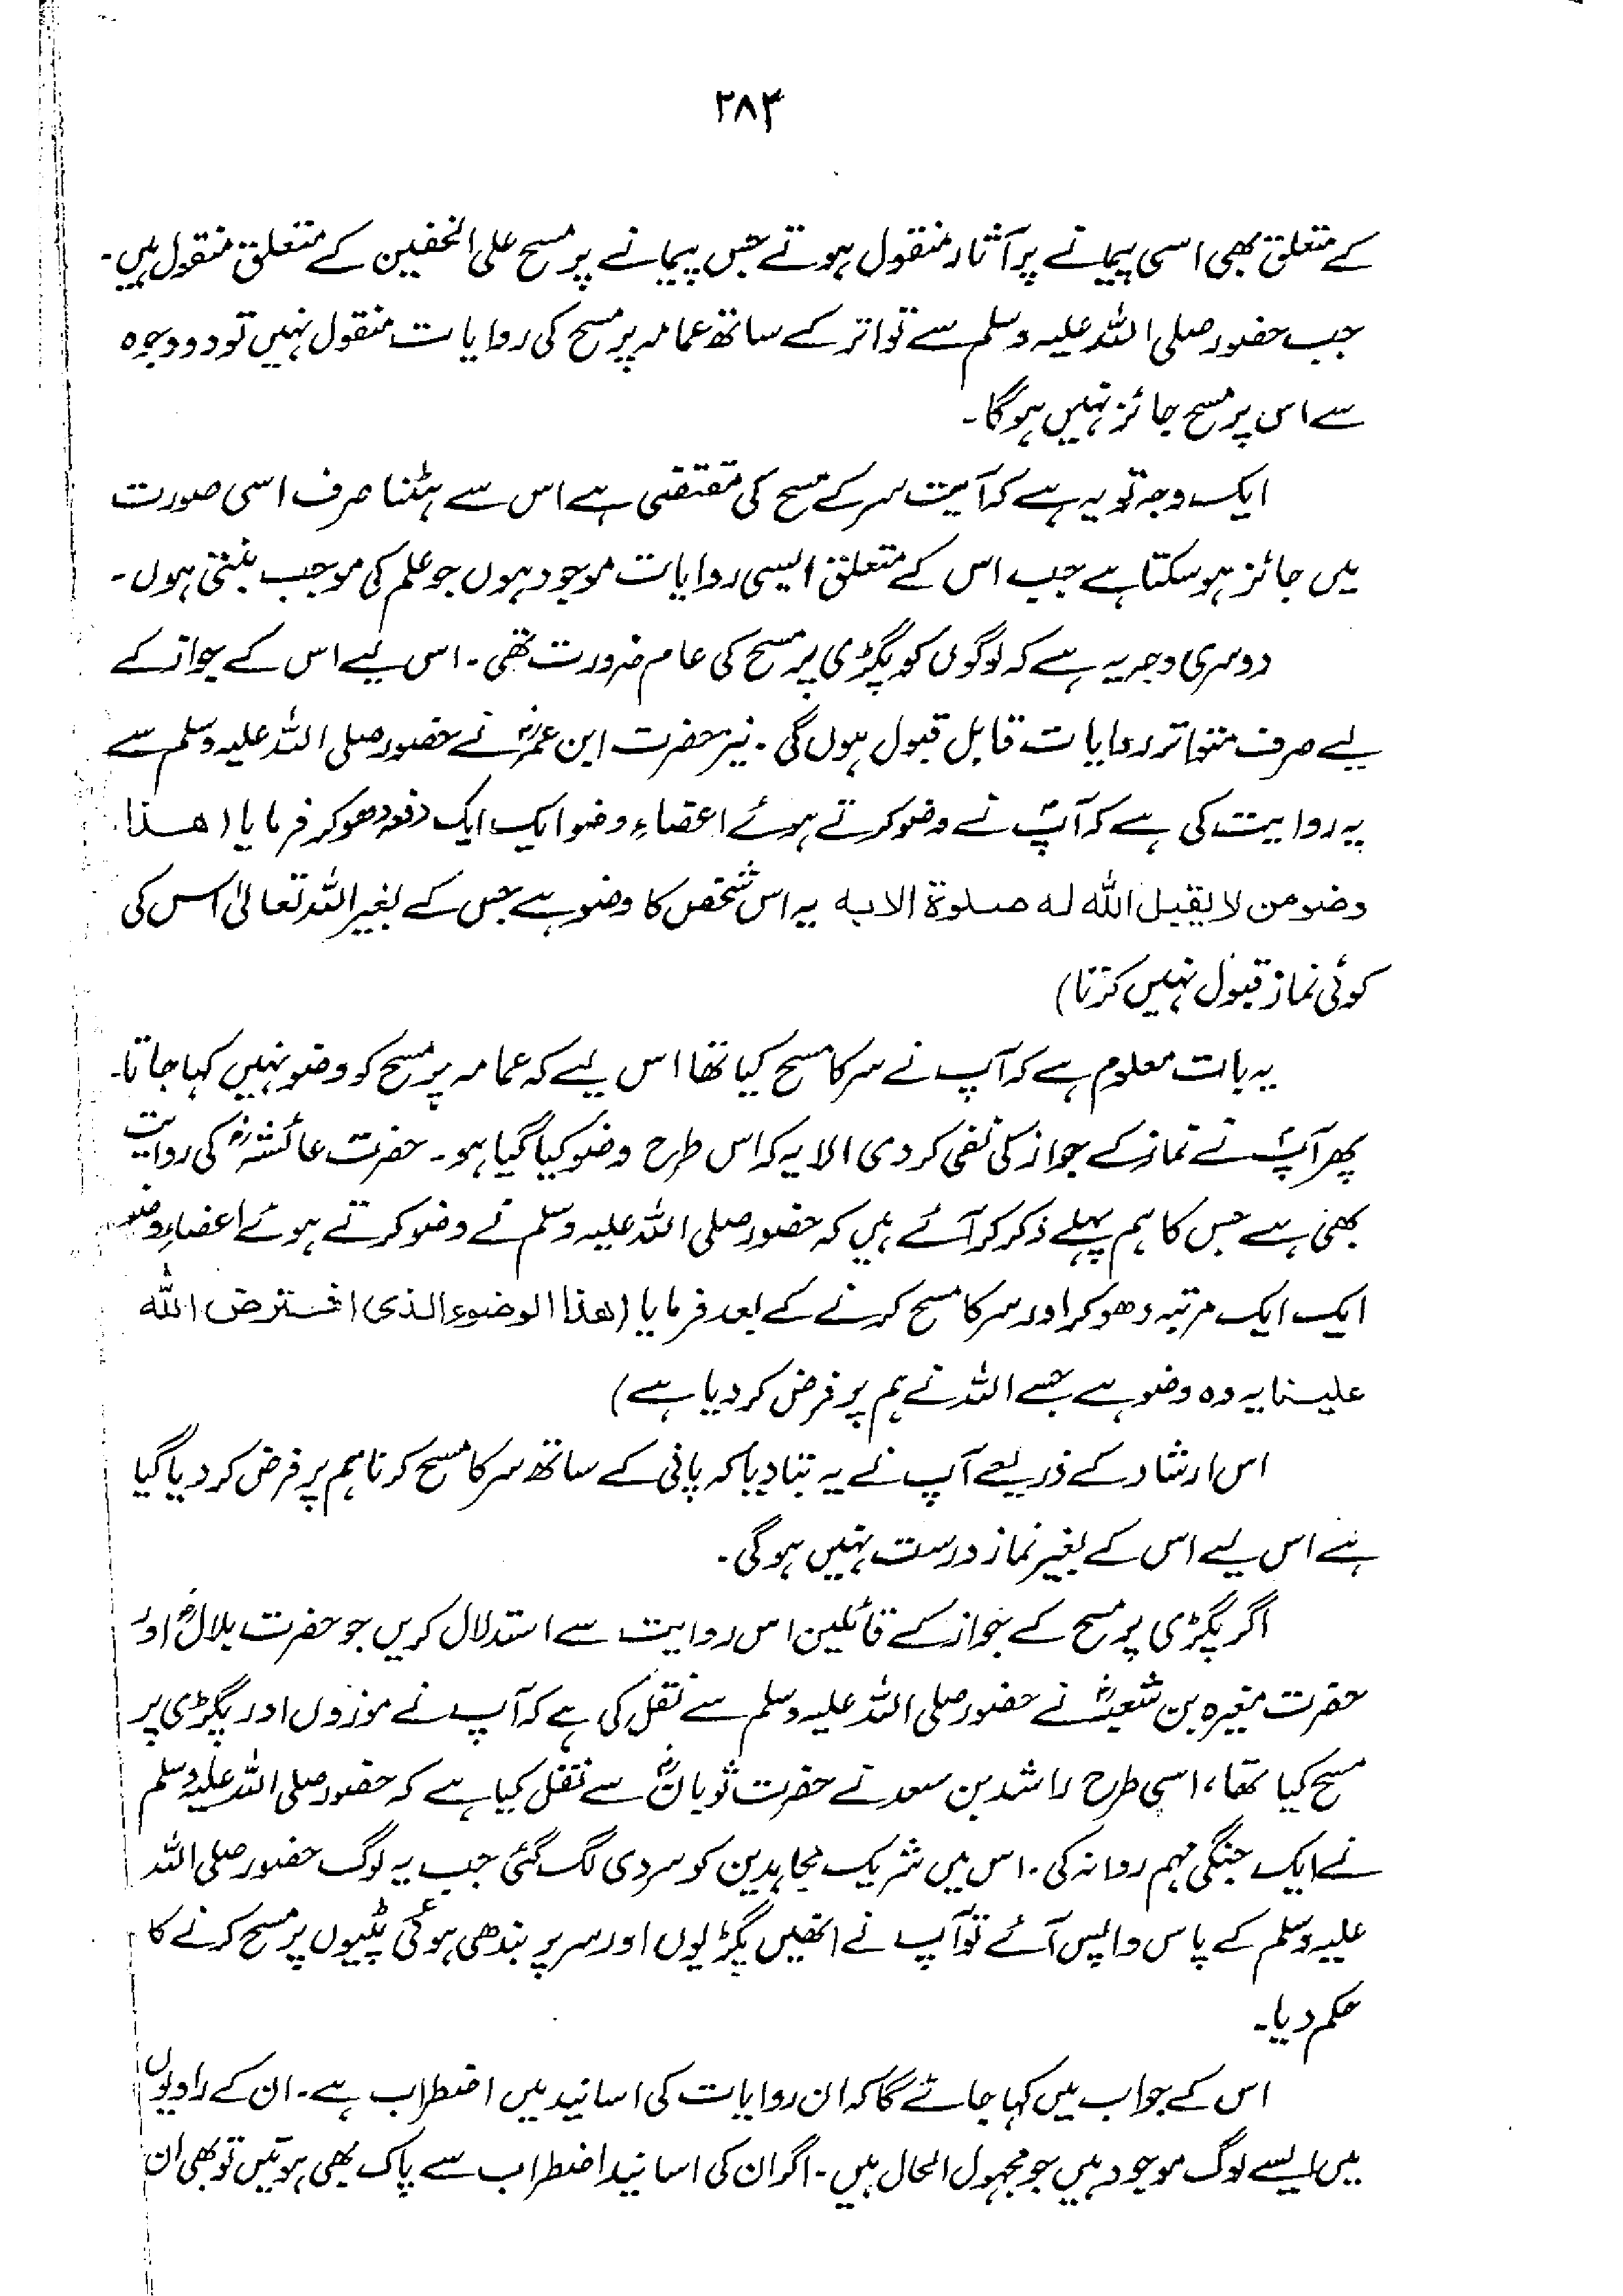 ۲۸۳
کے متعلق بھی اسی پیمانے پر آثار منقول ہوتے جس پیمانے پر مسح علی الخفین کے متعلق منقول ہیں۔
جب حضور صلی اللہ علیہ وسلم سے تواتر کے ساتھ عمامہ پر مسح کی روایات منقول نہیں تو دو وجوہ
سے اس پر مسح جائز نہیں ہوگا۔
ایک وجہ تو یہ ہے کہ آیت سر کے مسح کی مقتضی ہے اس سے ہٹنا صرف اسی صورت
میں جائز ہو سکتا ہے جب اس کے متعلق ایسی روایات موجود ہوں جو علم کی موجب بنتی ہوں۔
دوسری وجہ یہ ہے کہ لوگوں کو پگڑی پر مسح کی عام ضرورت تھی۔ اس لیے اس کے جواز کے
لیے صرف متواتر روایات قابل قبول ہوں گی۔ نیز حضرت ابن عمرؓ نے حضور صلی اللہ علیہ وسلم سے
یہ روایت کی ہے کہ آپؐ نے وضو کرتے ہوئے اعضاءِ وضو ایک ایک دفعہ دھو کر فرمایا (هذا
وضو من لا يقبل الله له صلوة الا به یہ اس شخص کا وضو ہے جس کے بغیر اللہ تعالیٰ اس کی
کوئی نماز قبول نہیں کرتا)
یہ بات معلوم ہے کہ آپ نے سر کا مسح کیا تھا اس لیے کہ عمامہ پر مسح کو وضو نہیں کہا جاتا۔
پھر آپؐ نے نماز کے جواز کی نفی کر دی الا یہ کہ اس طرح وضو کیا گیا ہو۔ حضرت عائشہؓ کی روایت
بھی ہے جس کا ہم پہلے ذکر کر آئے ہیں کہ حضور صلی اللہ علیہ وسلم نے وضو کرتے ہوئے اعضاءِ وضو
ایک ایک مرتبہ دھو کر اور سر کا مسح کرنے کے بعد فرمایا (هذا الوضوء الذی افترض الله
علینا یہ وہ وضو ہے جسے اللہ نے ہم پر فرض کر دیا ہے)
اس ارشاد کے ذریعے آپ نے یہ بتا دیا کہ پانی کے ساتھ سر کا مسح کرنا ہم پر فرض کر دیا گیا
ہے اس لیے اس کے بغیر نماز درست نہیں ہوگی۔
اگر پگڑی پر مسح کے جواز کے قائلین اس روایت سے استدلال کریں جو حضرت بلالؓ اور
حضرت مغیرہ بن شعبہؓ نے حضور صلی اللہ علیہ وسلم سے نقل کی ہے کہ آپ نے موزوں اور پگڑی پر
مسح کیا تھا، اسی طرح راشد بن سعد نے حضرت ثوبانؓ سے نقل کیا ہے کہ حضور صلی اللہ علیہ وسلم
نے ایک جنگی مہم روانہ کی۔ اس میں شریک مجاہدین کو سردی لگ گئی جب یہ لوگ حضور صلی اللہ
علیہ وسلم کے پاس واپس آئے تو آپ نے انھیں پگڑیوں اور سر پر بندھی ہوئی پٹیوں پر مسح کرنے کا
حکم دیا۔
اس کے جواب میں کہا جائے گا کہ ان روایات کی اسانید میں اضطراب ہے۔ ان کے راویوں
میں ایسے لوگ موجود ہیں جو مجہول الحال ہیں۔ اگر ان کی اسانید اضطراب سے پاک بھی ہوتیں تو بھی ان